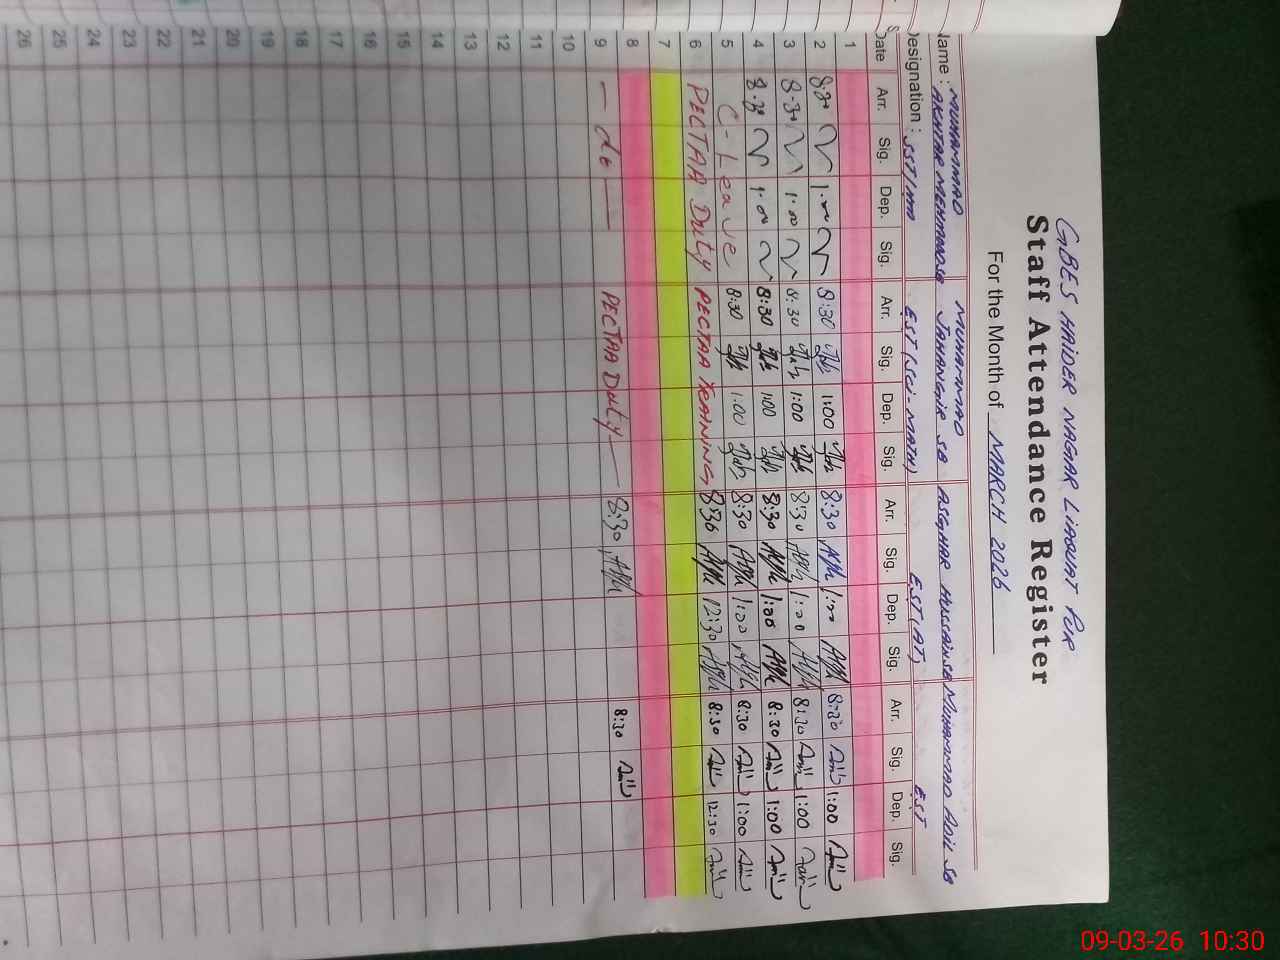 GBES HAIDER NAGAR LIAQUAT PUR
Staff Attendance Register
For the Month of MARCH 2026
Name : MUHAMMAD AKHTAR MEHMOOD SB MUHAMMAD JAHANGIR SB ASGHAR HUSSAIN SB MUHAMMAD ADIL SB
Designation : SST/HM EST (SCI-MATH) EST (AT) EST
Date Arr. Sig. Dep. Sig. Arr. Sig. Dep. Sig. Arr. Sig. Dep. Sig. Arr. Sig. Dep. Sig.
1
2 8:30 1:00 8:30 1:00 8:30 1:00 8:30 1:00
3 8:30 1:00 8:30 1:00 8:30 1:00 8:30 1:00
4 8:30 1:00 8:30 1:00 8:30 1:00 8:30 1:00
5 C-Leave 8:30 1:00 8:30 1:00 8:30 1:00
6 PECTAA Duty PECTAA TRAINING 8:30 12:30 8:30 12:30
7
8
9 — do — PECTAA Duty — 8:30 8:30
10
11
12
13
14
15
16
17
18
19
20
21
22
23
24
25
26
09-03-26 10:30